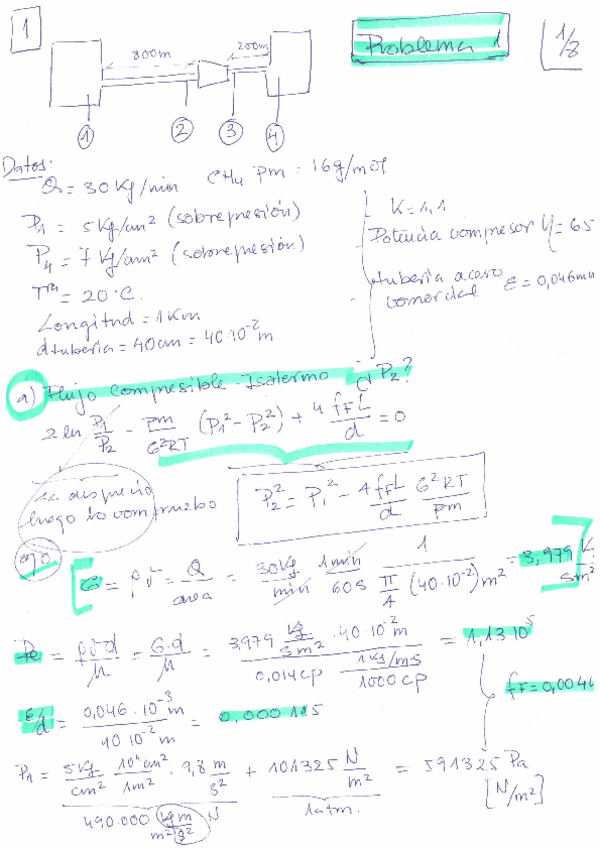 1
Problema 1
1/8
800m
200m
1 2 3 4
Datos:
Q = 30 Kg/min CH4 pm = 16g/mol
P1 = 5 Kg/cm² (sobrepresión)
P4 = 7 Kg/cm² (sobrepresión)
Tra = 20°C.
Longitud = 1Km
dtuberia = 40cm = 40·10⁻² m
K = 1,1
Potencia compresor η = 65
tuberia acero
comercial ε = 0,046mm
a) Flujo Compresible - Isotermo ¿P2?
2 ln P1/P2 - pm/G²RT (P1² - P2²) + 4 fFL/d = 0
la desprecio
luego lo compruebo
P2² = P1² - 4 fFL/d G²RT/pm
G = ρv = Q/area = 30Kg/min 1min/60s 1/(π/4 (40·10⁻²)m²) = 3,979 K/sm²
Re = ρvd/μ = G·d/μ = (3,979 Kg/sm² · 40·10⁻² m)/(0,014cp 1Kg/ms/1000cp) = 1,13·10⁵
ε/d = 0,046·10⁻³ m/40·10⁻² m = 0,000115
fF = 0,0046
P1 = 5Kg/cm² 10⁴cm²/1m² · 9,8 m/s² + 101325 N/m² = 591325 Pa
[N/m²]
490.000 Kgm/m²s² N
1atm.